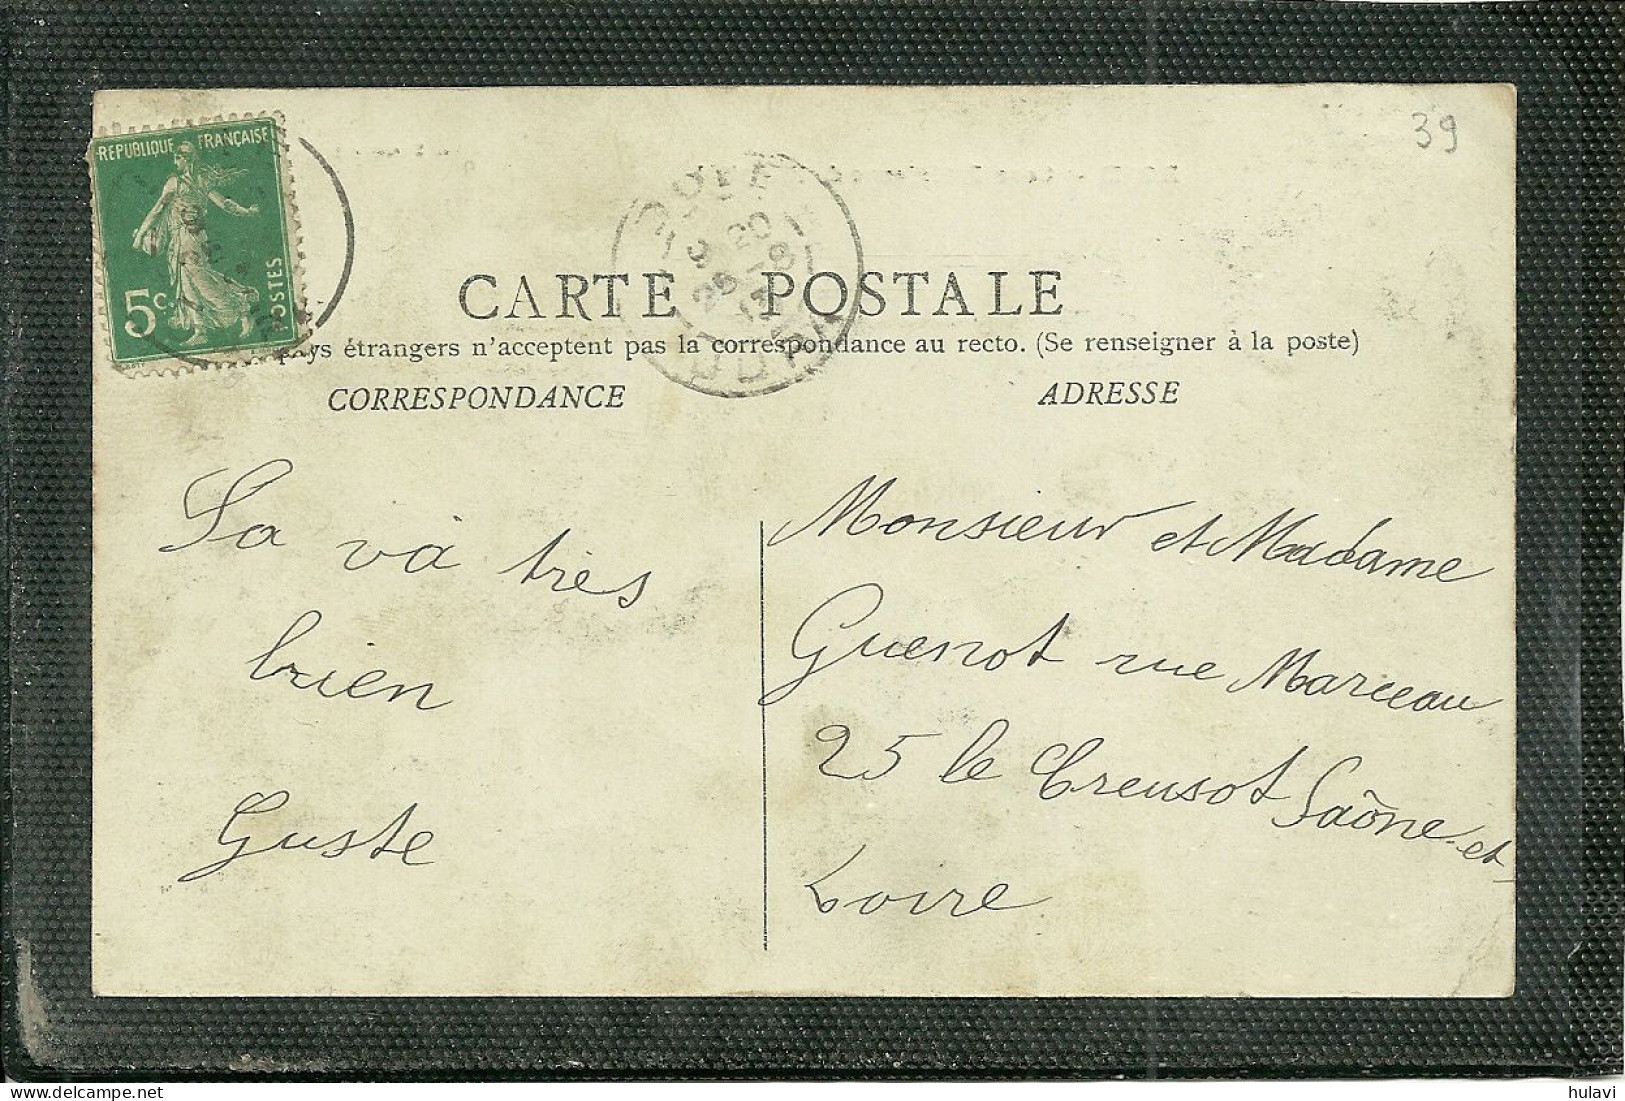 39
REPUBLIQUE FRANÇAISE
5c.
POSTES
DOLE
JURA
CARTE POSTALE
pays étrangers n'acceptent pas la correspondance au recto. (Se renseigner à la poste)
CORRESPONDANCE
ADRESSE
Sa va très
bien
Guste
Monsieur et Madame
Guenot rue Marceau
25 le Creusot Saône-et-
Loire
hulavi